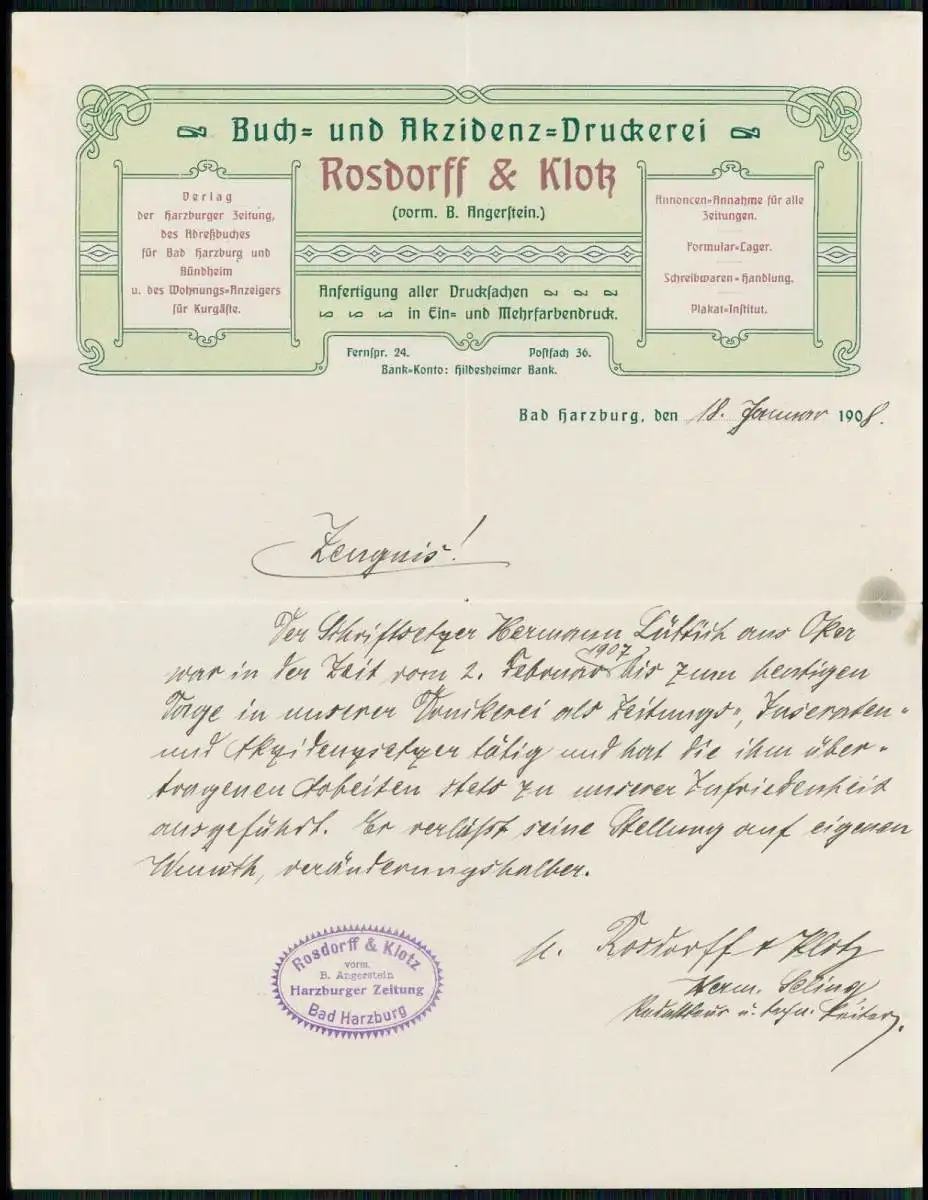 Buch- und Akzidenz-Druckerei
Rosdorff & Klotz
(vorm. B. Angerstein.)
Verlag
der Harzburger Zeitung,
des Adreßbuches
für Bad Harzburg und
Bündheim
u. des Wohnungs-Anzeigers
für Kurgäste.
Anfertigung aller Drucksachen
in Ein- und Mehrfarbendruck.
Annoncen-Annahme für alle
Zeitungen.
Formular-Lager.
Schreibwaren-Handlung.
Plakat-Institut.
Fernspr. 24. Postfach 36.
Bank-Konto: Hildesheimer Bank.
Bad Harzburg, den 18. Januar 1908.
Zeugnis!
Der Schriftsetzer Hermann aus Oker
war in der Zeit vom 2. Februar 1907 bis zum heutigen
Tage in unserer Druckerei als Zeitungs-, Inseraten-
und Akzidenzsetzer tätig und hat die ihm über-
tragenen Arbeiten stets zu unserer Zufriedenheit
ausgeführt. Er verläßt seine Stellung auf eigenen
Wunsch, veränderungshalber.
Rosdorff & Klotz
Herm.
Redakteur u. techn. Leiter.
Rosdorff & Klotz
vorm.
B. Angerstein
Harzburger Zeitung
Bad Harzburg